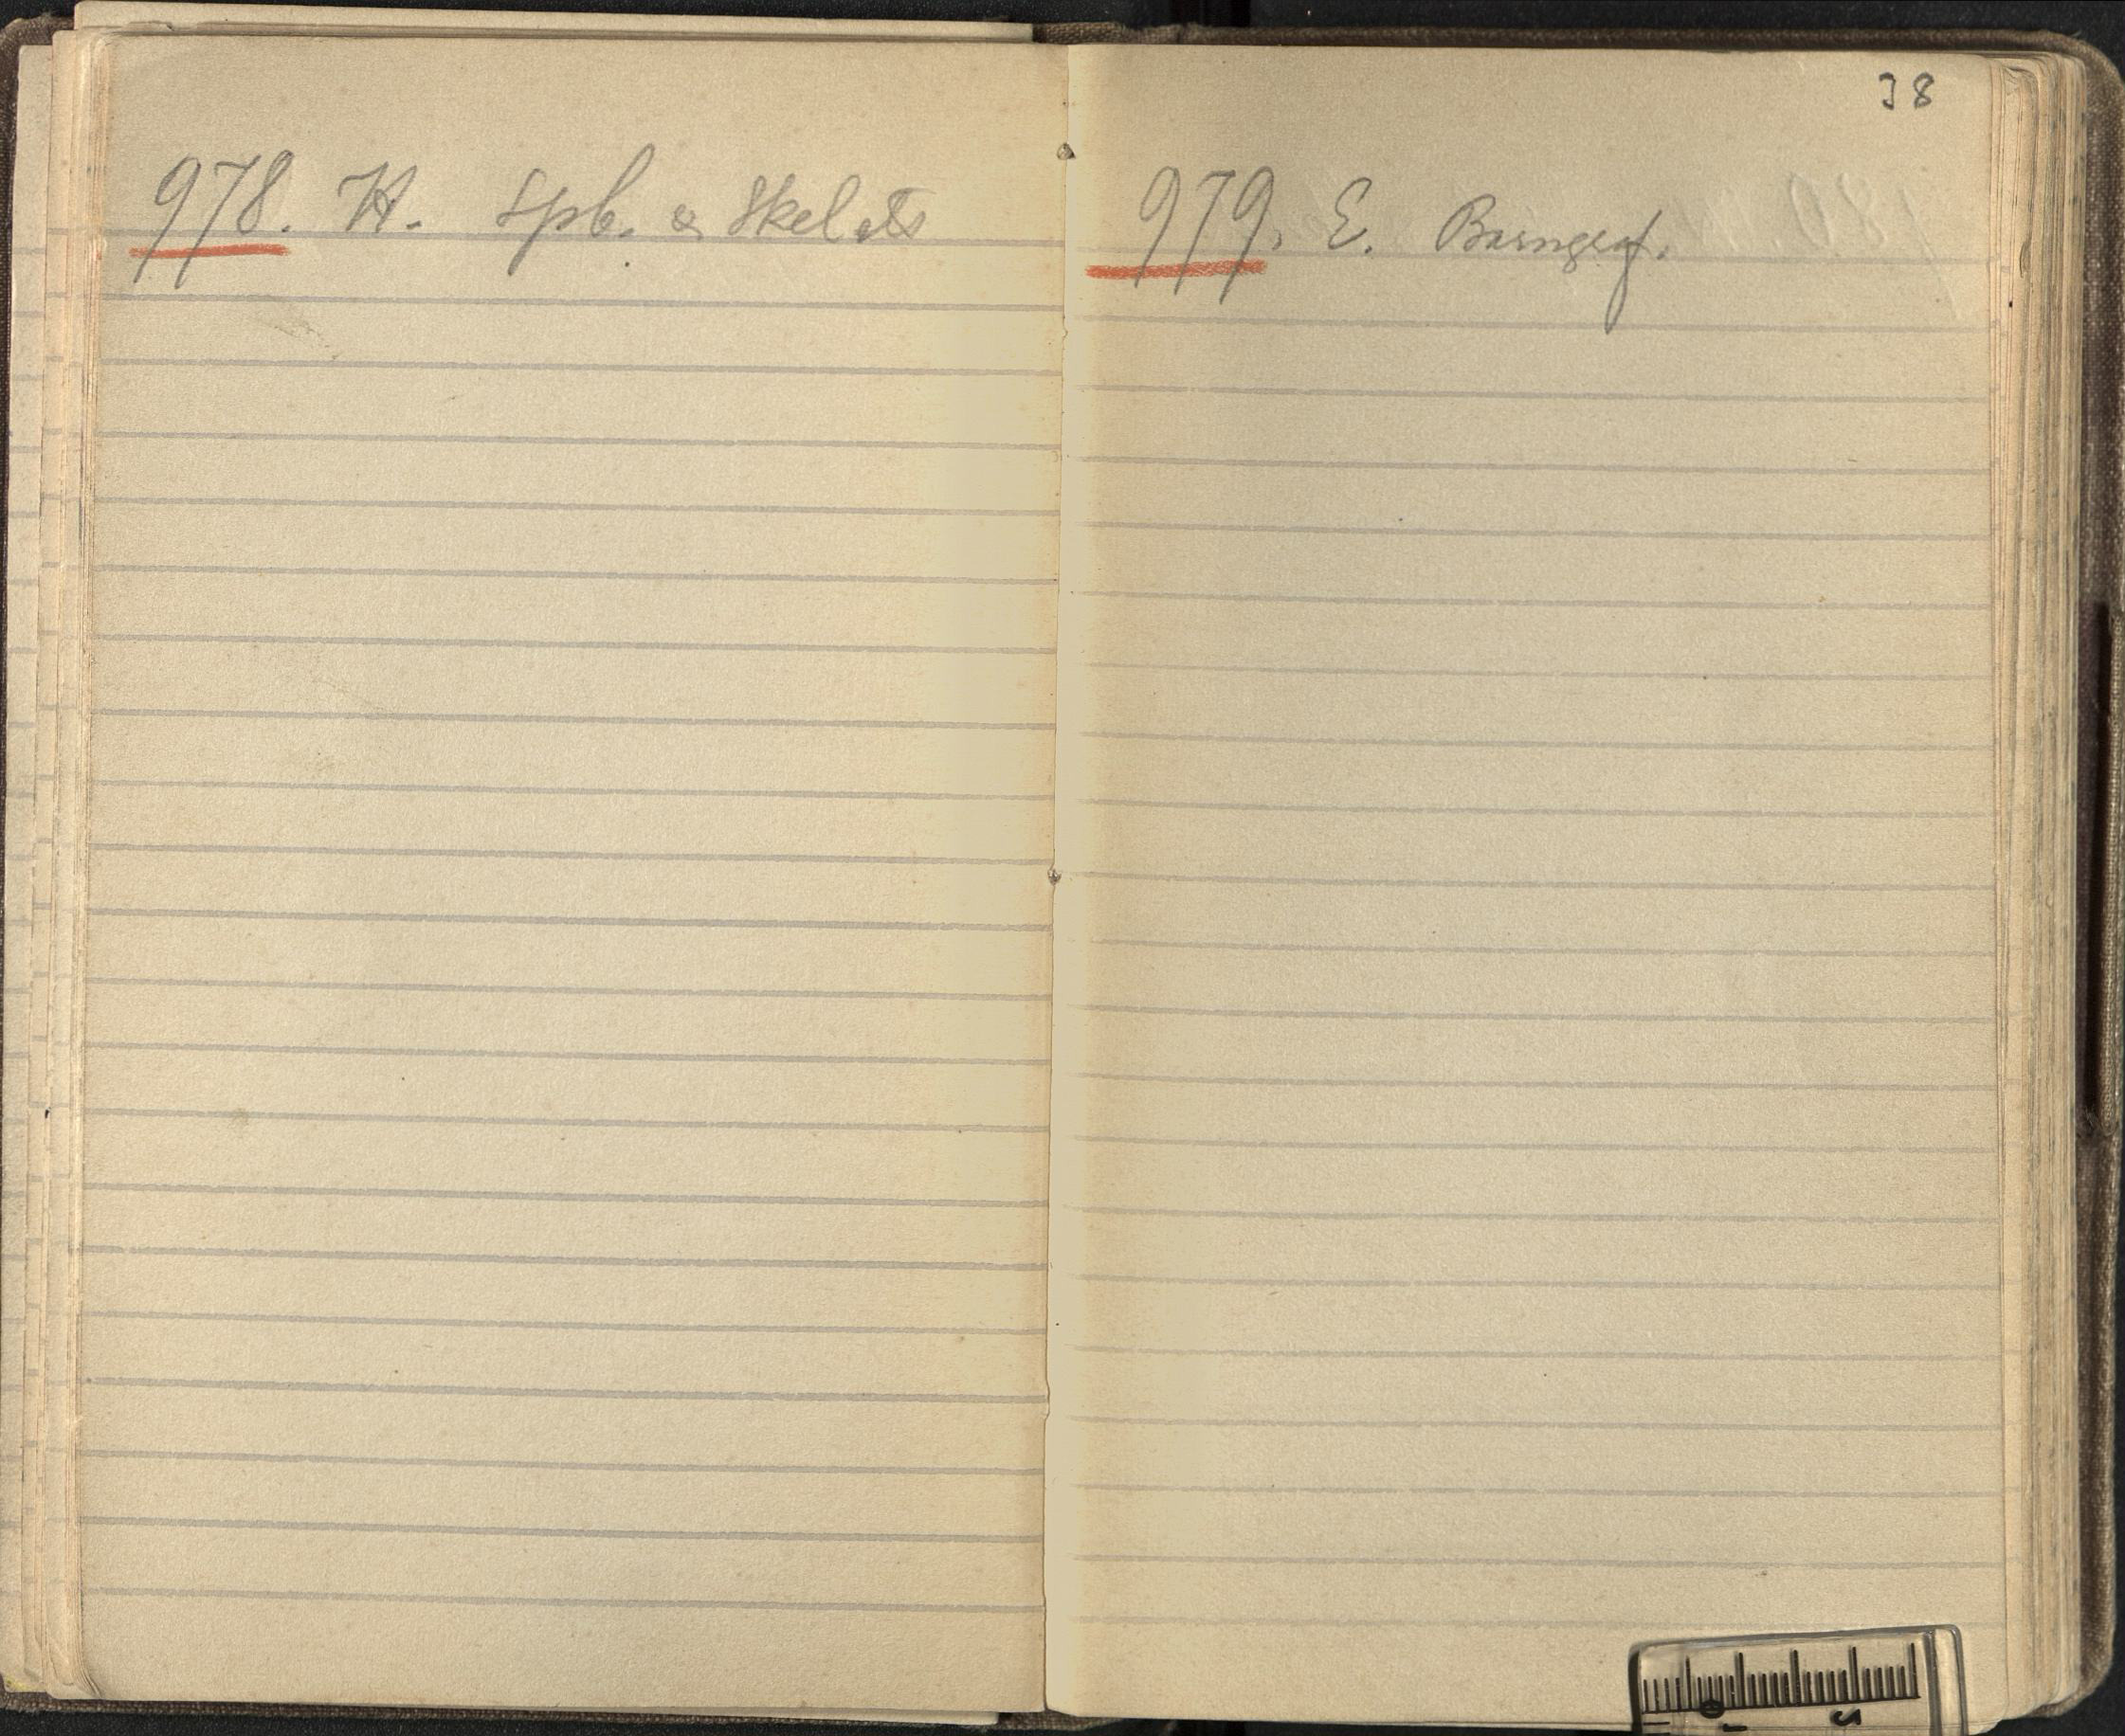 978. H. Spb. & Skelets
38
979. E. Barngraf.